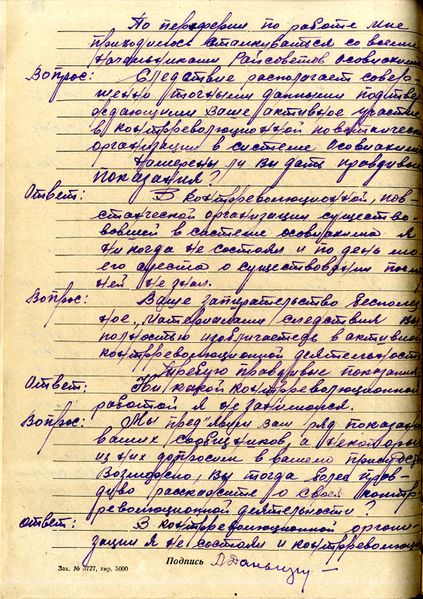 По периферии по работе мне
приходилось сталкиватся со всеми
начальниками Райсоветов Осоавиахима
Вопрос: Следствие располагает совер-
шенно точными данными подтвер-
ждающими Ваше активное участие
в контрреволюционной повстанческой
организации в системе Осоавиахима
Намерены ли Вы дать правдивые
показания?
Ответ: В контрреволюционной, пов-
станческой организации существо-
вавшей в системе осоавиахима я
никогда не состоял и по день мо-
его ареста о существовании
ней не знал.
Вопрос: Ваше запирательство бесполез-
ное, материалами следствия Вы
полностью изобличаетесь в активной
контрреволюционной деятельности
Требую правдивые показания.
Ответ: Ни какой контрреволюционной
работой я не занимался.
Вопрос: Мы пред'явим вам ряд показаний
ваших сообщников, а некоторых
из них допросим в вашем присутствии
Возможно, Вы тогда более прав-
диво расскажите о своей контр-
революционной деятельности?
Ответ: В контрреволюционной органи-
зации я не состоял и контрреволюц
Подпись
Зак. № 3727, тир. 5000